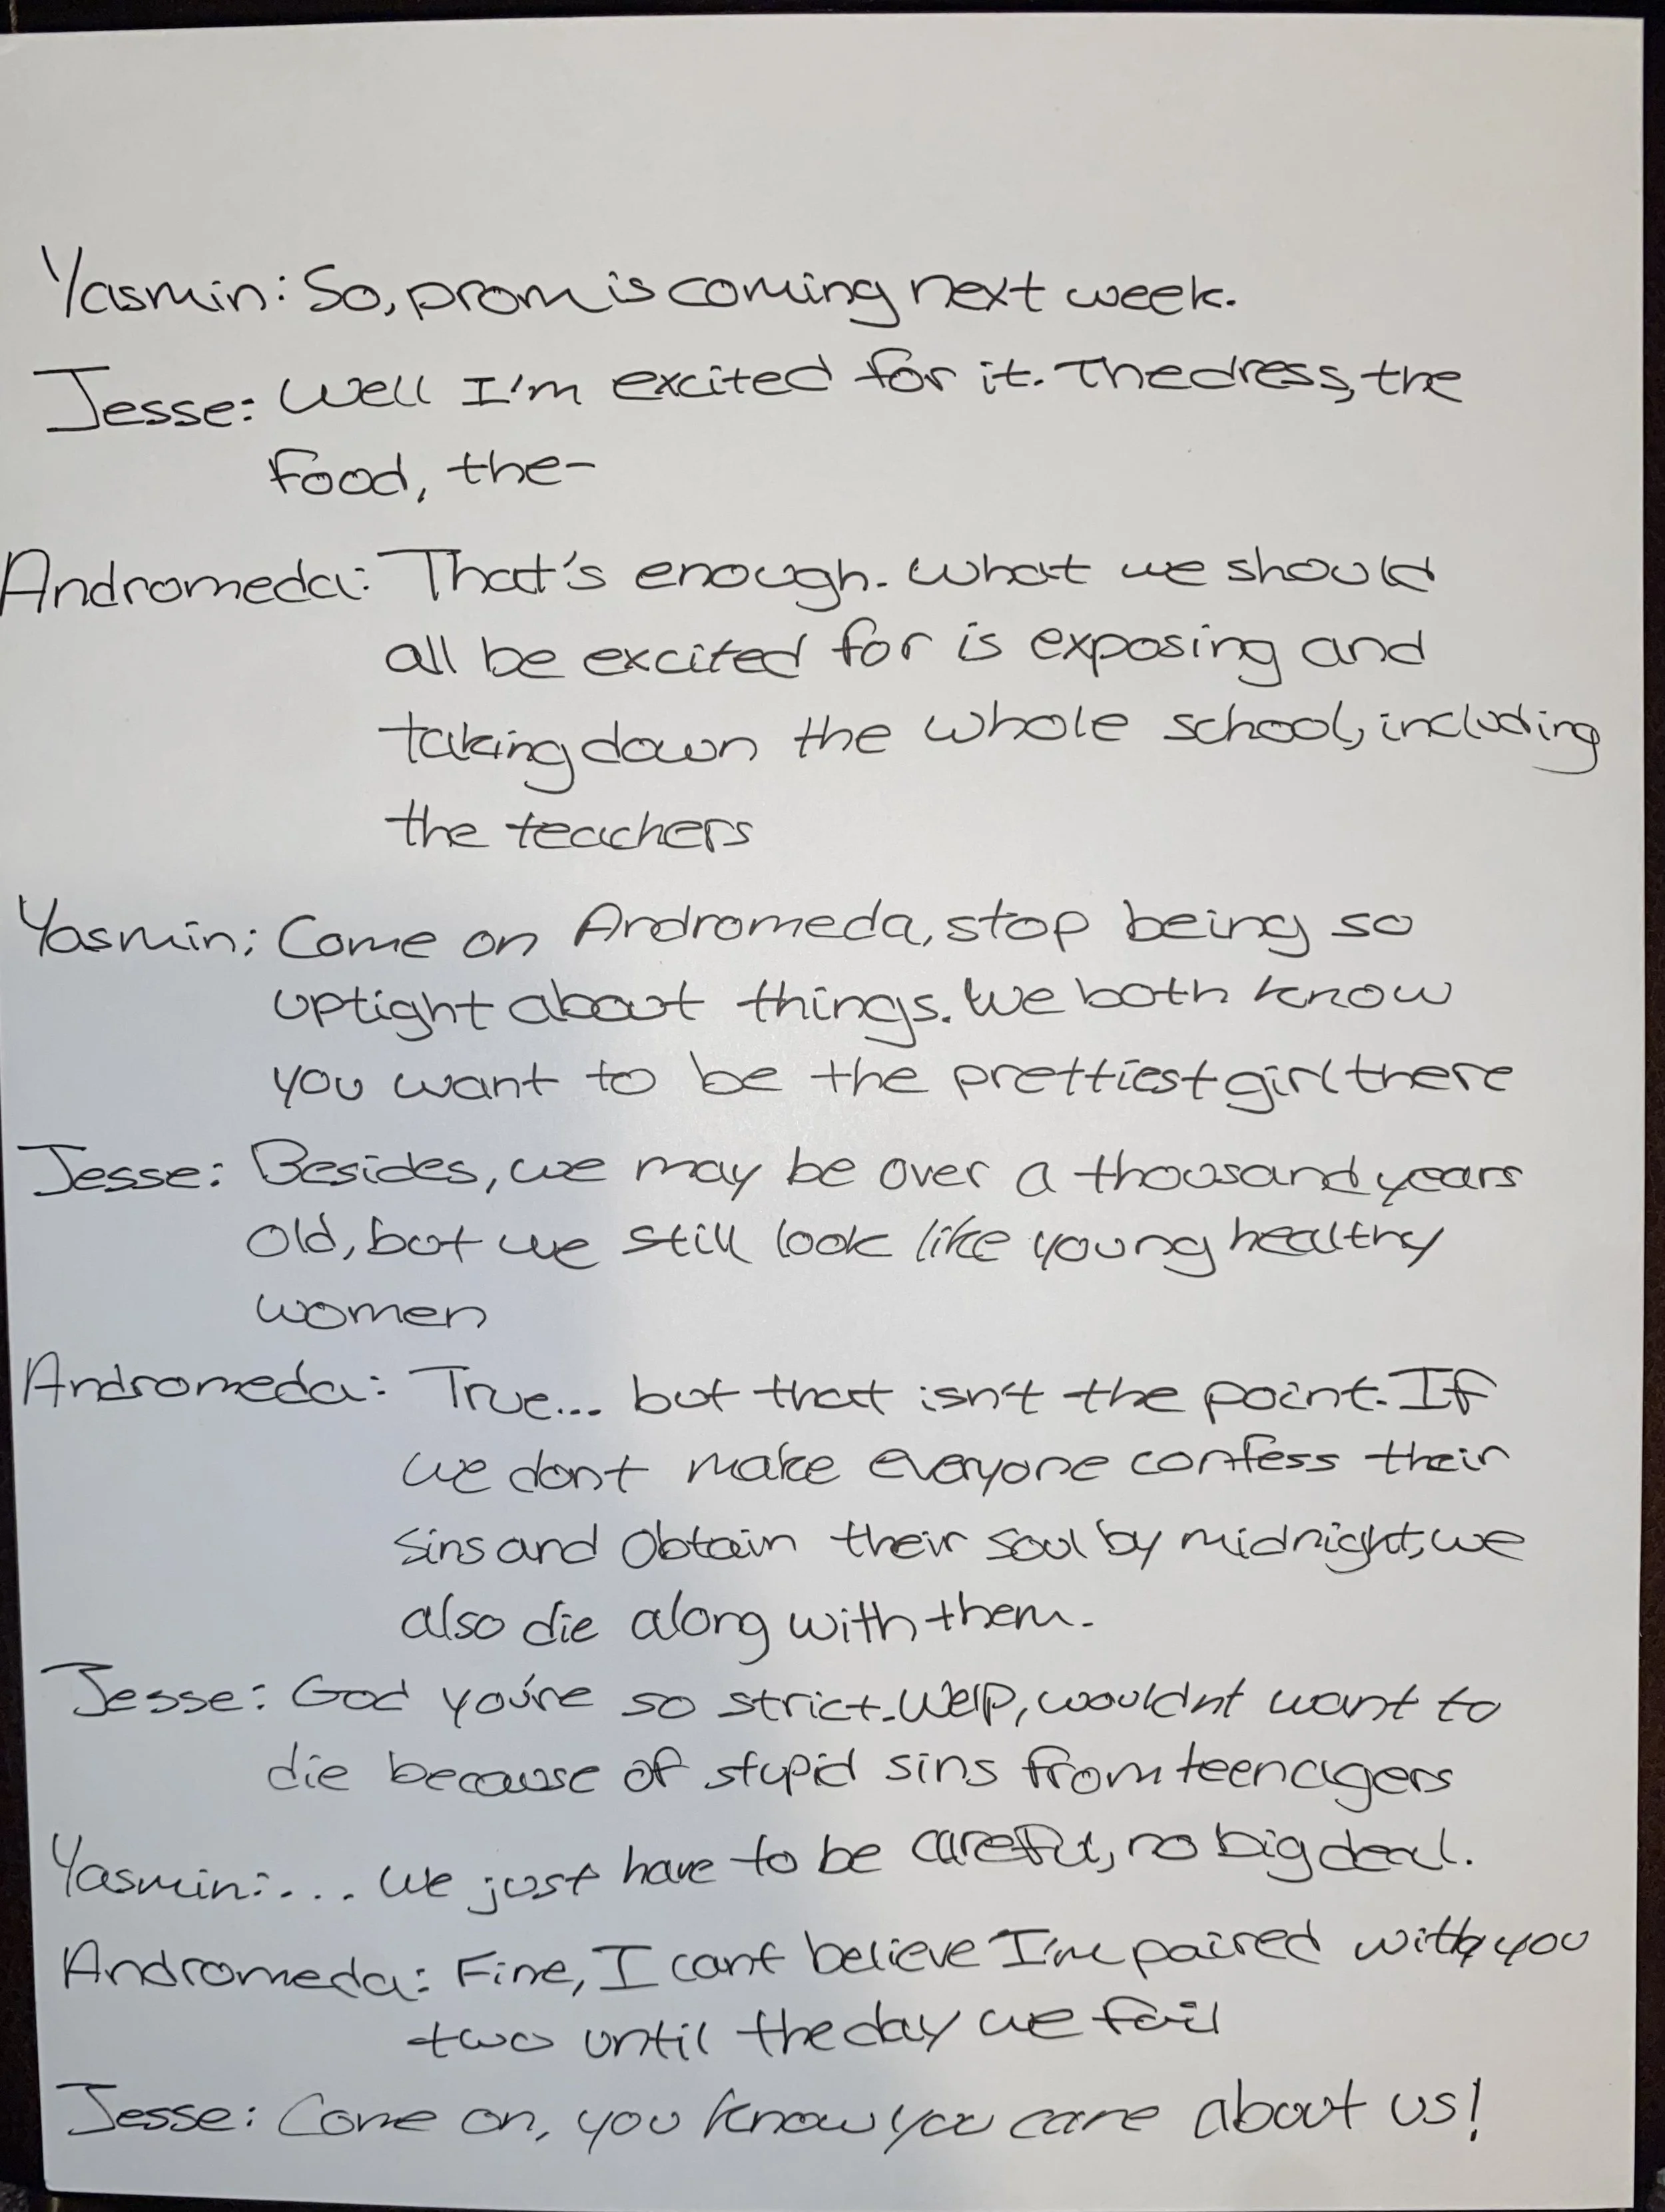 Yasmin: So, prom is coming next week.
Jesse: Well I'm excited for it. The dress, the
food, the-
Andromeda: That's enough. What we should
all be excited for is exposing and
taking down the whole school, including
the teachers
Yasmin: Come on Andromeda, stop being so
uptight about things. We both know
you want to be the prettiest girl there
Jesse: Besides, we may be over a thousand years
old, but we still look like young healthy
women
Andromeda: True... but that isn't the point. If
we dont make everyone confess their
sins and obtain their soul by midnight, we
also die along with them.
Jesse: God you're so strict. Welp, wouldnt want to
die because of stupid sins from teenagers
Yasmin: ... we just have to be careful, no big deal.
Andromeda: Fine, I cant believe I'm paired with you
two until the day we fail
Jesse: Come on, you know you care about us!